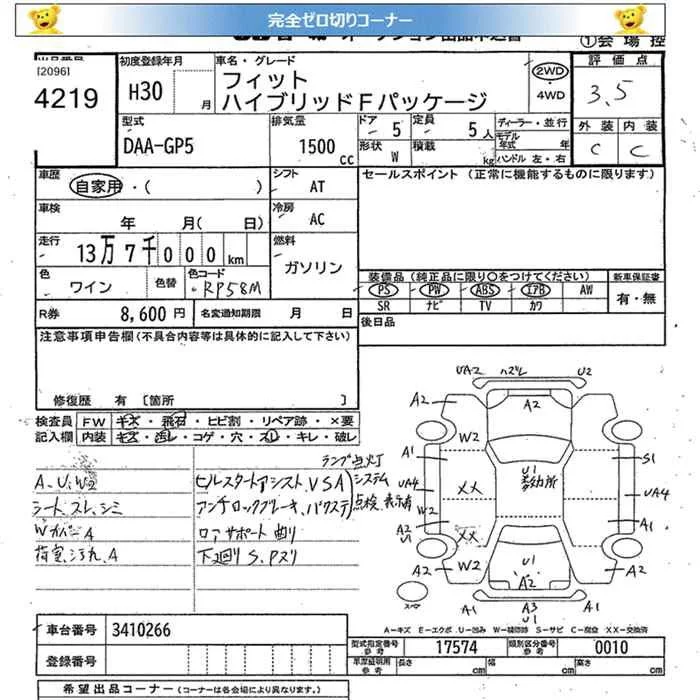 完全ゼロ切りコーナー
①会場控
[2096]
4219
初度登録年月
H30 月
車名・グレード
フィット
ハイブリッドFパッケージ
2WD
4WD
評価点
3.5
外装 内装
C C
型式
DAA-GP5
排気量
1500 cc
ドア 5
定員 5人
形状 W
積載 kg
ディーラー・並行
モデル年式 年
ハンドル 左・右
車歴
自家用・( )
シフト
AT
セールスポイント (正常に機能するものに限ります)
車検
年 月( 日)
冷房
AC
走行
13万7千000km
燃料
ガソリン
色
ワイン
色替
色コード
RP58M
装備品 (純正品に限り○をつけてください)
PS PW ABS エアB AW
SR ナビ TV カワ
新車保証書
有・無
R券 8,600円
名変通知期限 月 日
後日品
注意事項申告欄(不具合内容等は具体的に記入して下さい)
修復歴 有 [箇所 ]
検査員記入欄
FW キズ・飛石・ヒビ割・リペア跡・×要
内装 キズ・汚レ・コゲ・穴・スレ・キレ・破レ
A.U.W2
シートスレ、シミ
Wカバー A
荷室汚れ.A
ランプ点灯
ヒルスタートアシスト.VSA
アンチロックブレーキ、パワステ
システム
点検 表示有
ロアサポート曲り
下廻りS.Pスリ
UA2 ハズレ U2
A2 A2 A2
W2
A1 S1
XX U1 多数所
UA4 UA4
W2
A2 U1 A1
XX
W2 U1 A2
A2 A2
スペア
A1 A3 A1
U1
A-キズ E-エクボ U-凹み W-補修跡 S-サビ C-腐食 XX-交換済
車台番号 3410266
登録番号
型式指定番号 参考 17574
類別区分番号 参考 0010
車庫証明用 参考 長さ cm 幅 cm 高さ cm
希望出品コーナー (コーナーは各会場により異なります)